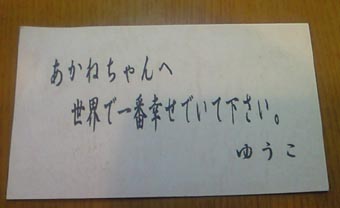 あかねちゃんへ
世界で一番幸せでいて下さい。
ゆうこ